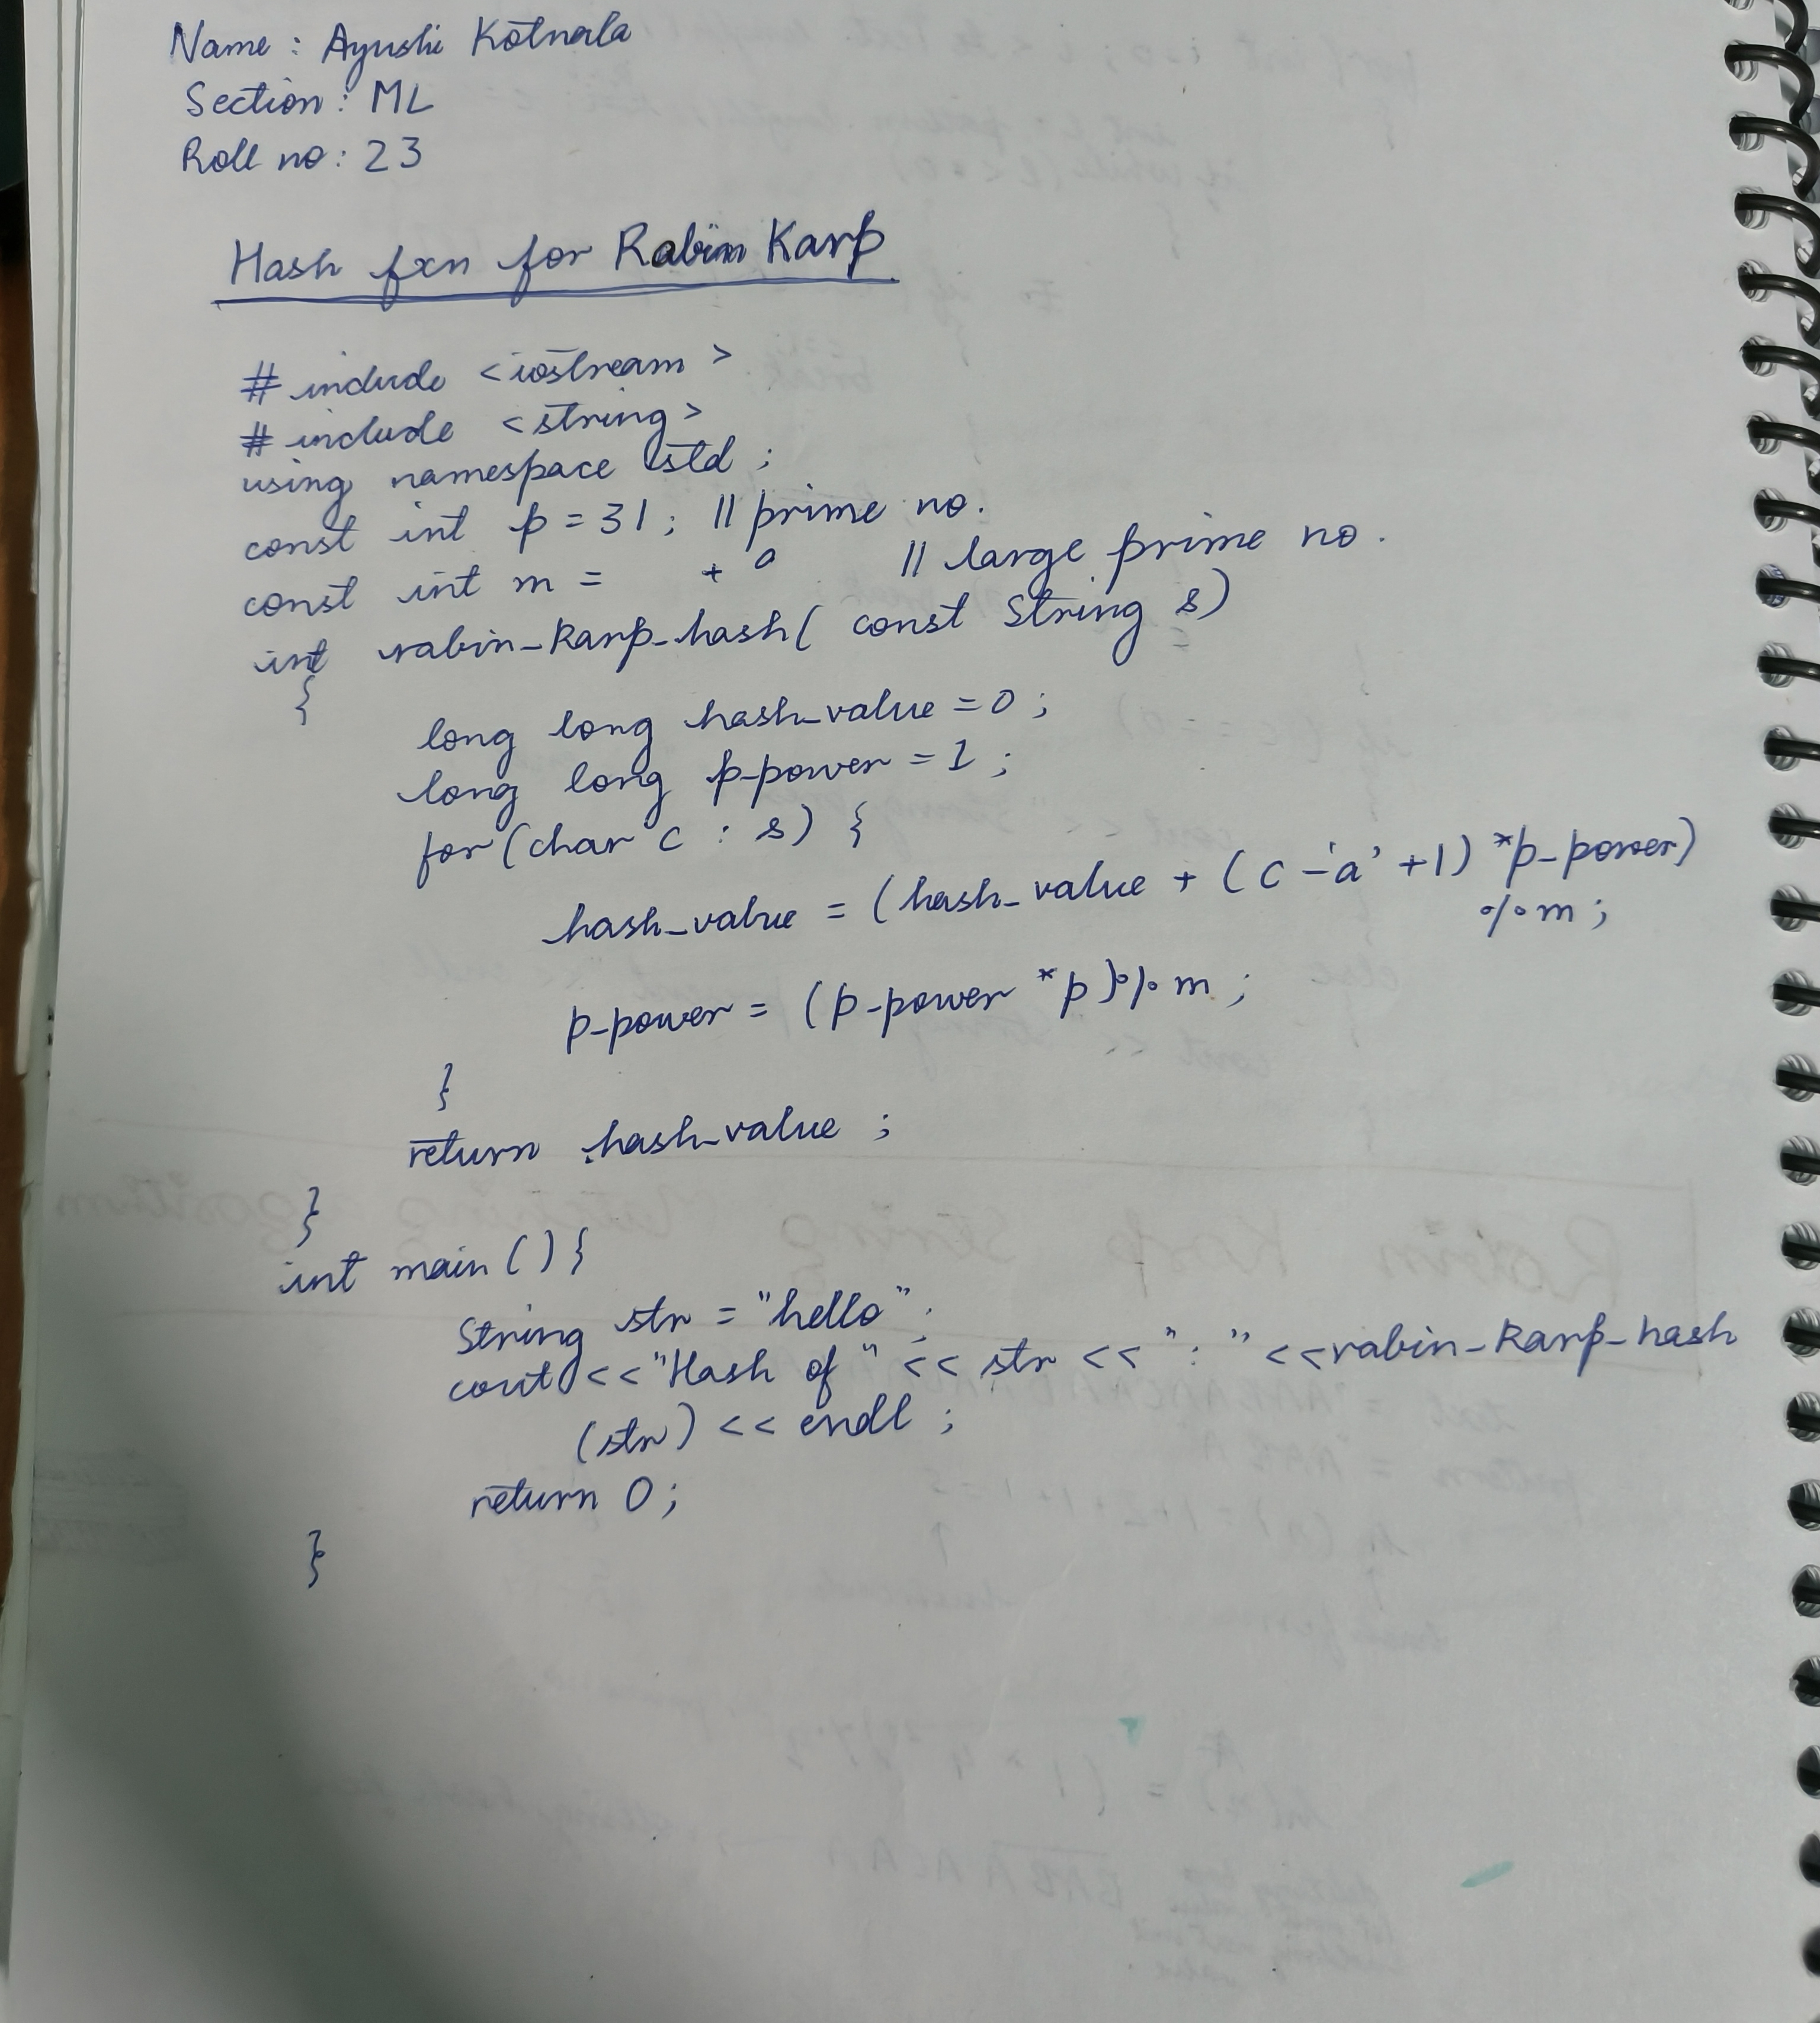 Name : Ayushi Kotnala
Section : ML
Roll no : 23
Hash fxn for Rabin Karp
# include <iostream>
# include <string>
using namespace std ;
const int p = 31 ; // prime no.
const int m = + // large prime no.
int rabin_Karp_hash( const String s)
{
long long hash_value = 0 ;
long long p_power = 1 ;
for (char c : s) {
hash_value = (hash_value + (c - 'a' + 1) * p_power)
% m ;
p_power = (p_power * p) % m ;
}
return hash_value ;
}
int main () {
String str = "hello" ;
cout << "Hash of " << str << " : " << rabin_Karp_hash
(str) << endl ;
return 0 ;
}